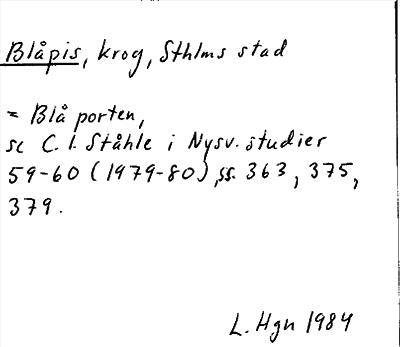 Blåpis, krog, Sthlms stad
= Blå porten,
se C. I. Ståhle i Nysv. studier
59-60 (1979-80), ss. 363, 375,
379.
L. Hgn 1984